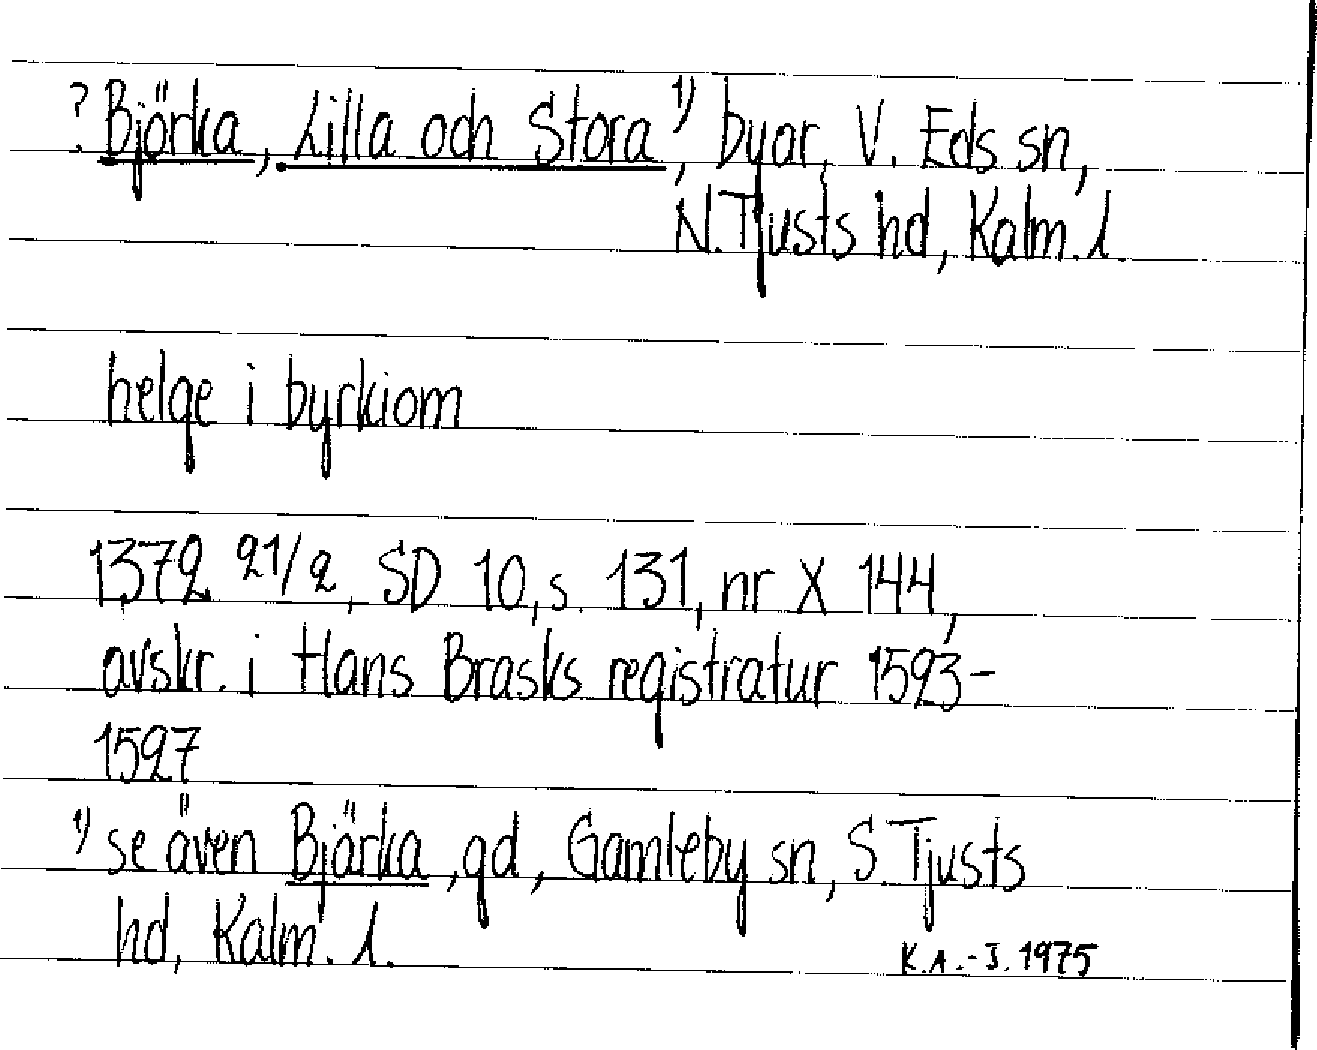 ? Björka, Lilla och Stora ¹⁾, byar, V. Eds sn,
N. Tjusts hd, Kalm. l.
helge i byrkiom
1372 21/2, SD 10, s. 131, nr X 144,
avskr. i Hans Brasks registratur 1523-
1527
¹⁾ se även Björka, gd, Gamleby sn, S. Tjusts
hd, Kalm. l.
K.A.-J. 1975